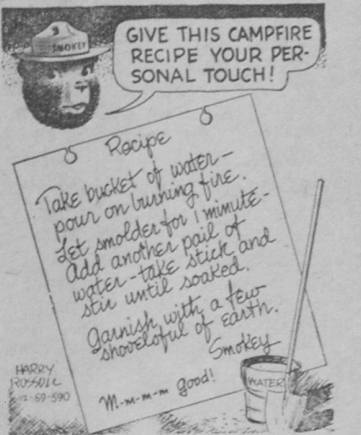 SMOKEY
GIVE THIS CAMPFIRE
RECIPE YOUR PER-
SONAL TOUCH!
Recipe
Take bucket of water—
pour on burning fire.
Let smolder for 1 minute-
Add another pail of
water—take stick and
stir until soaked.
Garnish with a few
shovelsful of earth.
Smokey
M-m-m-m good!
WATER
HARRY